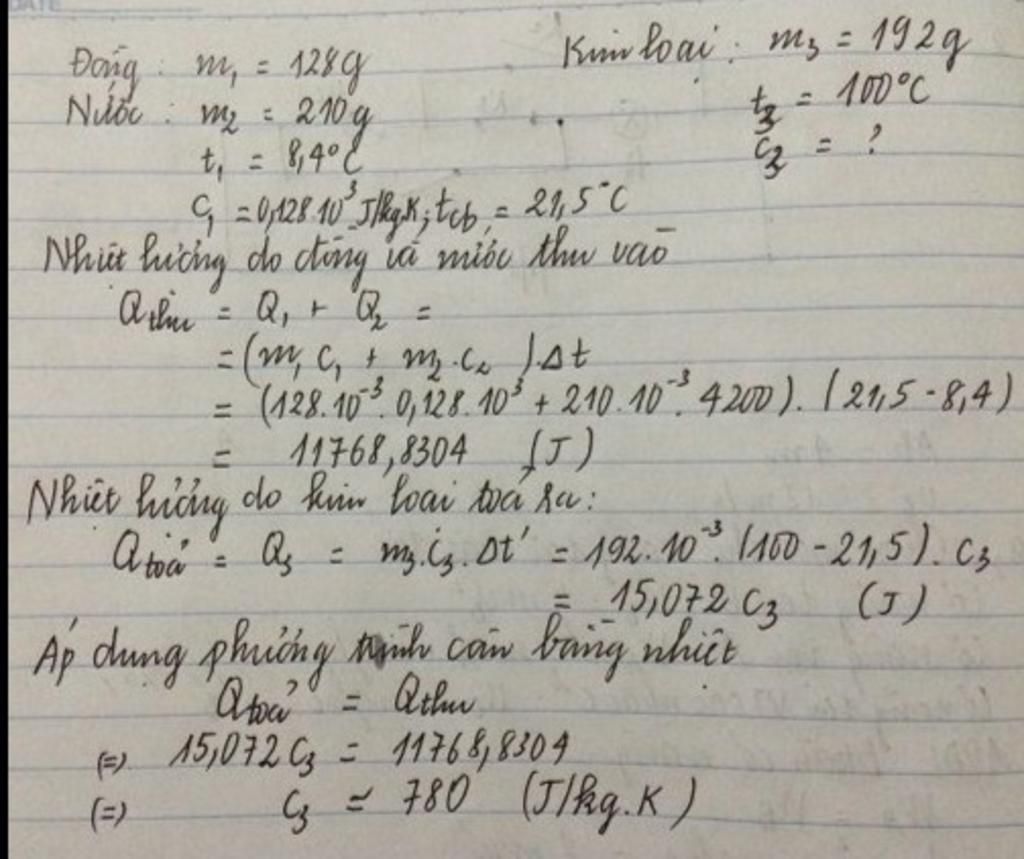 Đồng : m₁ = 128g
Kim loại : m₃ = 192g
Nước : m₂ = 210g
t₃ = 100°C
t₁ = 8,4°C
c₃ = ?
c₁ = 0,128.10³ J/kg.K; tcb = 21,5°C
Nhiệt lượng do đồng và nước thu vào
Qthu = Q₁ + Q₂ =
= (m₁ c₁ + m₂.c₂ ).Δt
= (128.10⁻³. 0,128.10³ + 210.10⁻³. 4200). (21,5 - 8,4)
= 11768,8304 (J)
Nhiệt lượng do kim loại toả ra:
Qtoả = Q₃ = m₃.c₃.Δt' = 192.10⁻³. (100 - 21,5). c₃
= 15,072 c₃ (J)
Áp dụng phương trình cân bằng nhiệt
Qtoả = Qthu
(=) 15,072 c₃ = 11768,8304
(=) c₃ = 780 (J/kg.K)